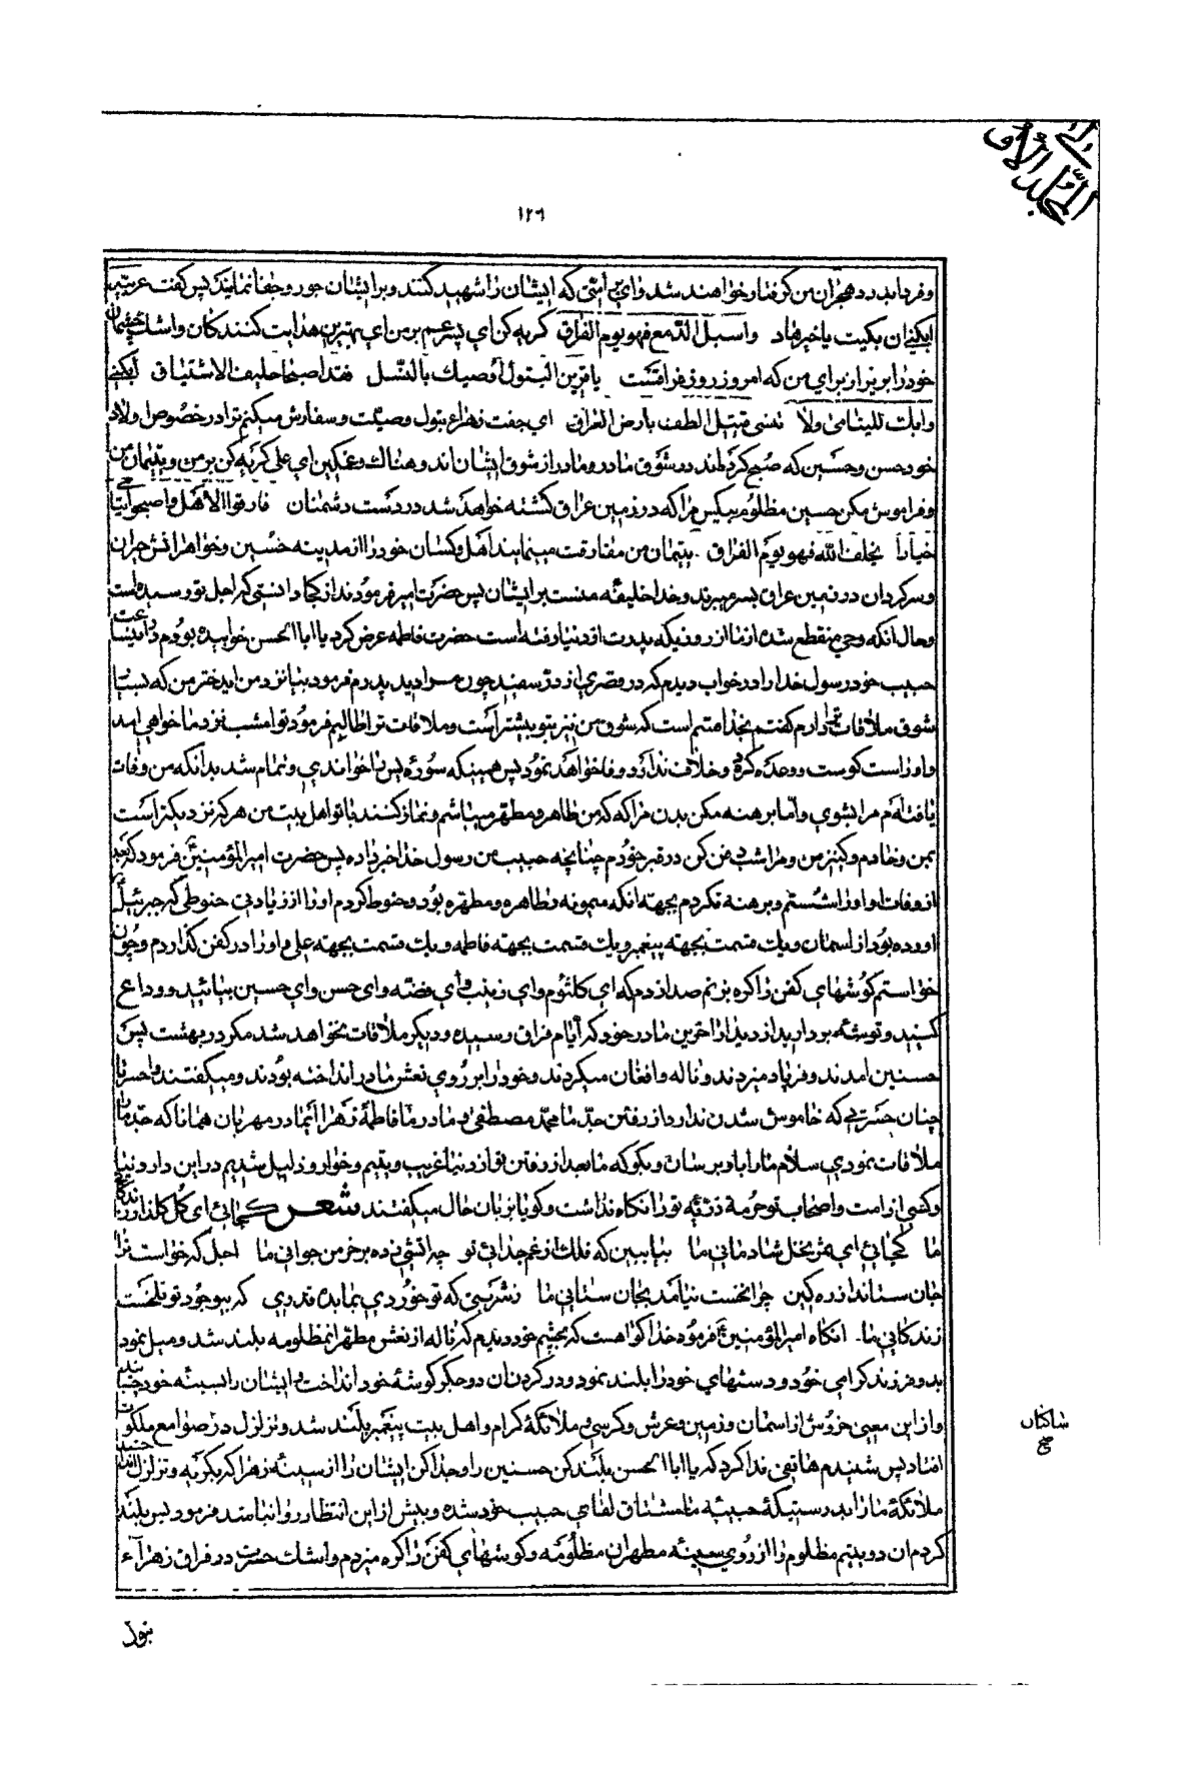 المجلد الأول
١٢٦
و فردا بدرد هجران من گرفتار خواهند شد وای بر امتی که ایشان را شهید کنند و بر ایشان جور و جفا نمایند پس گفت عربیة
ابکنی ان بکیت یا خیر هاد و اسبل الدمع فهو یوم الفراق گریه کن ای پسر عم بر من ای بهترین هدایت کنندگان و اشک چشمان
خود را بریز از برای من که امروز روز فراقست یا قرین البتول اوصیک بالنسل فقد اصبحا حلیف الاشتیاق ابکنی
و ابک للیتامی و لا تنسی قتیل الطف بارض العراق ای جفت زهراء بتول وصیت و سفارش میکنم ترا در خصوص اولاد
خود حسن و حسین که صبح کرده‌اند در شوق مادر و مادر از شوق ایشان اندوهناک و غمگین ای علی گریه کن بر من و یتیمان من
و فراموش مکن حسین مظلوم بیکس مرا که در زمین عراق کشته خواهد شد در دست دشمنان فارقوا الاهل و اصبحوا یتامی
حیارا یخلف الله فهو یوم الفراق یتیمان من مفارقت مینمایند اهل و کسان خود را از مدینه حسین و خواهرانش حیران
و سرگردان در زمین عراق بسر میبرند و خدا خلیفه منست بر ایشان پس حضرت امیر فرمودند از کجا دانستی که اجل تو رسیده است
و حال آنکه وحی منقطع شده از ما از روزیکه پدرت از دنیا رفته است حضرت فاطمه عرض کرد یا ابا الحسن خوابیده بودم در این ساعت
حبیب خود رسول خدا را در خواب دیدم که در قصری از در سفید چون مرا دید پدرم فرمود بیا نزد من ای دختر من که بسیار
شوق ملاقات ترا دارم گفتم بخدا قسم است که شوق من نیز بتو بیشتر است و ملاقات ترا طالبم فرمود تو امشب نزد ما خواهی آمد
و او راست گوست و وعده کرده و خلاف ندارد و وفا خواهد نمود پس همینکه سوره یس را خواندی و تمام شد بدانکه من وفات
یافته‌ام مرا بشوی و اما برهنه مکن بدن مرا که من طاهر و مطهر میباشم و نماز کنند با تو اهل بیت من هر که نزدیکتر است
بمن و خادم و کنیز من و مرا شب دفن کن در قبر خودم چنانچه حبیب من رسول خدا خبر داده پس حضرت امیرالمؤمنین فرمود که بعد
از وفات او او را شستم و برهنه نکردم بجهته آنکه میمونه و طاهره و مطهره بود و حنوط کردم او را از زیادتی حنوطی که جبرئیل
آورده بود از اسمان و یک قسمت بجهته پیغمبر و یک قسمت بجهته فاطمه و یک قسمت بجهته علی و او را در کفن گذاردم و چون
خواستم گوشهای کفن را گره بزنم صدا زدم که ای کلثوم وای زینب وای فضه وای حسن وای حسین بیائید و وداع
کنید و توشه بردارید از دیدار آخرین مادر خود که ایام فراق رسیده و دیگر ملاقات نخواهد شد مگر در بهشت پس
حسنین آمدند و فریاد میزدند و ناله و افغان میکردند و خود را بر روی نعش مادر انداخته بودند و میگفتند واحسرتا
چنان حسرتی که خاموش شدن ندارد از رفتن جد ما محمد مصطفی و مادر ما فاطمه زهرا ای مادر مهربان همانا که جد ما را
ملاقات نمودی سلام ما را باو برسان و بگو که ما بعد از رفتن تو از دنیا غریب و یتیم و خوار و ذلیل شدیم در این دار دنیا
و کسی از امت و اصحاب تو حرمة ذریه تو را نگاه نداشت و گویا بزبان حال میگفتند شعر کجائی ای گل گلزار زندگانی
ما کجائی ای ثمر نخل شادمانی ما بیا ببین که فلک از غم جدائی تو چه اتشی زده بر خرمن جوانی ما اجل که خواست ترا
جان ستاند از ره کین چرا نخست نیامد بجان ستانی ما ز شربتی که تو خوردی بما بده قدری که بیوجود تو تلخست
زندگانی ما انگاه امیر المؤمنین فرمود خدا گواهست که بچشم خود دیدم که ناله از نعش مطهر انمظلومه بلند شد و میل نمود
بدو فرزند گرامی خود و دستهای خود را بلند نمود و در گردن ان دو جگر گوشه خود انداخت و ایشان را بسینه خود چسبانید
و از این معنی خروش از اسمان و زمین و عرش و کرسی و ملائکه کرام و اهل بیت پیغمبر بلند شد و تزلزل در صوامع ملکوت
افتاد پس شنیدم هاتفی ندا کرد که یا ابا الحسن بلند کن حسنین را و جدا کن ایشان را از سینه زهرا که بگریه و تزلزل انداختند
ملائکه ما را بدرستیکه حبیبه ما مشتاق لقای حبیب خود شده و بیش از این انتظار روا نباشد فرمود پس بلند
کردم ان دو یتیم مظلوم را از روی سینه مطهر ان مظلومه و گوشهای کفن را گره میزدم و اشک حسرت در فراق زهراء
ساکنان
صح
بتول